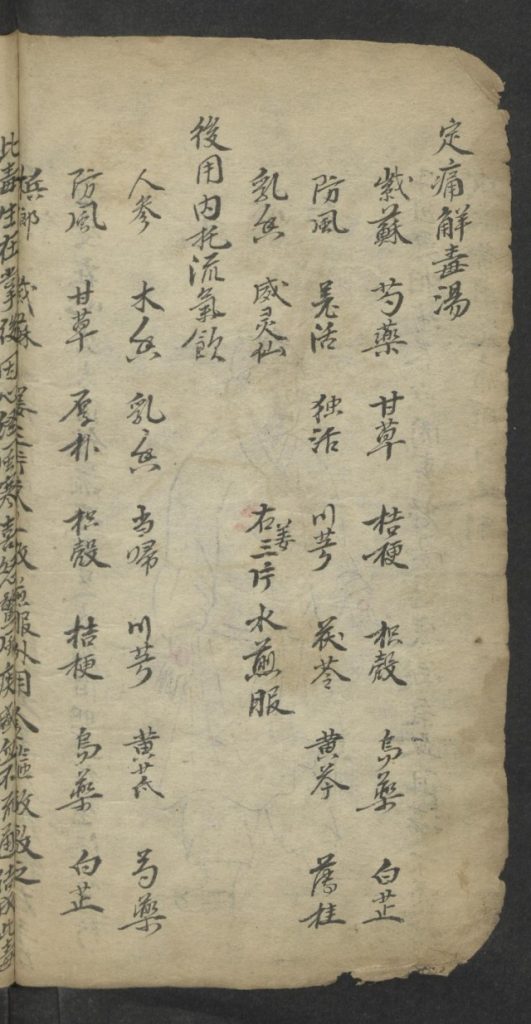 定痛解毒湯
紫蘇 芍藥 甘草 桔梗 枳殼 烏藥 白芷
防風 羌活 独活 川芎 茯苓 黄芩 薄桂
乳香 威灵仙
右姜三片水煎服
後用内托流氣飲
人參 木香 乳香 当歸 川芎 黄芪 芍藥
防風 甘草 厚朴 枳殼 桔梗 烏藥 白芷
梹郎
此毒生在掌後因心経風寒